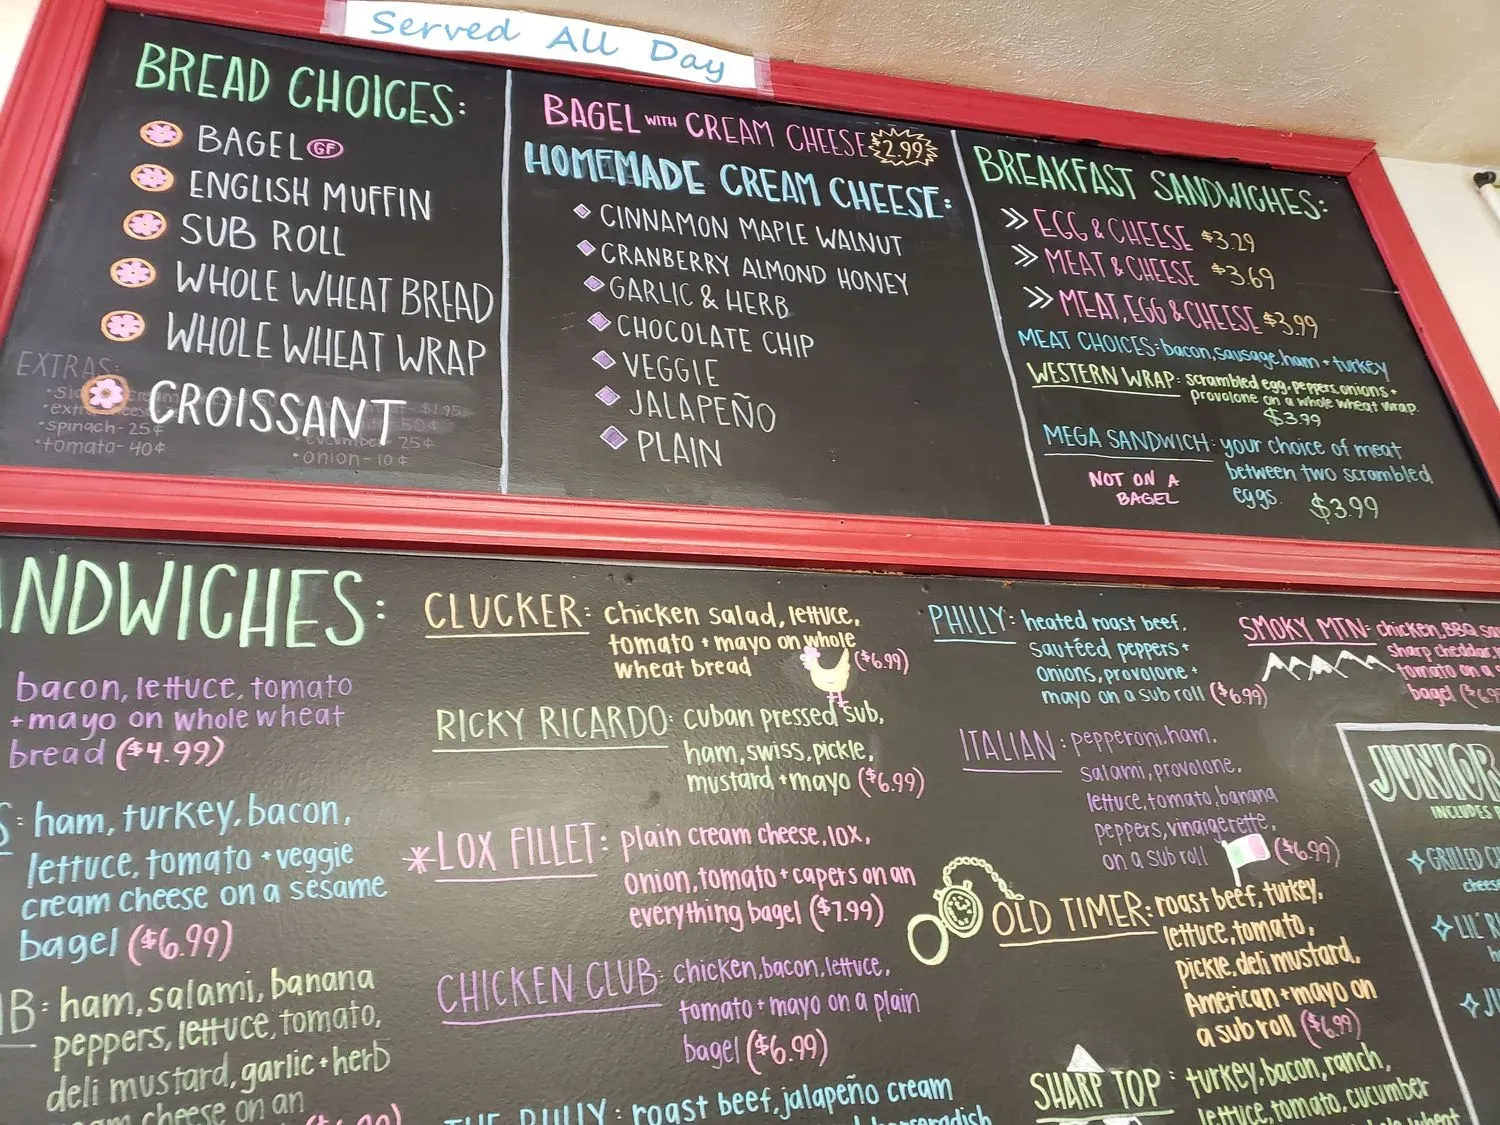 Served All Day
BREAD CHOICES:
BAGEL GF
ENGLISH MUFFIN
SUB ROLL
WHOLE WHEAT BREAD
WHOLE WHEAT WRAP
CROISSANT
EXTRAS:
$1.95
50¢
•spinach-25¢
cucumber 25¢
•tomato-40¢
•onion-10¢
BAGEL WITH CREAM CHEESE $2.99
HOMEMADE CREAM CHEESE:
CINNAMON MAPLE WALNUT
CRANBERRY ALMOND HONEY
GARLIC & HERB
CHOCOLATE CHIP
VEGGIE
JALAPEÑO
PLAIN
BREAKFAST SANDWICHES:
EGG & CHEESE $3.29
MEAT & CHEESE $3.69
MEAT, EGG & CHEESE $3.99
MEAT CHOICES: bacon, sausage, ham + turkey
WESTERN WRAP: scrambled egg, peppers, onions +
provolone on a whole wheat wrap.
$3.99
MEGA SANDWICH: your choice of meat
between two scrambled
eggs. $3.99
NOT ON A
BAGEL
NDWICHES:
bacon, lettuce, tomato
+ mayo on whole wheat
bread ($4.99)
S: ham, turkey, bacon,
lettuce, tomato + veggie
cream cheese on a sesame
bagel ($6.99)
B: ham, salami, banana
peppers, lettuce, tomato,
deli mustard, garlic + herb
cheese on an
CLUCKER: chicken salad, lettuce,
tomato + mayo on whole
wheat bread ($6.99)
RICKY RICARDO: cuban pressed sub,
ham, swiss, pickle,
mustard + mayo ($6.99)
*LOX FILLET: plain cream cheese, lox,
onion, tomato + capers on an
everything bagel ($7.99)
CHICKEN CLUB: chicken, bacon, lettuce,
tomato + mayo on a plain
bagel ($6.99)
THE BULLY: roast beef, jalapeño cream
horseradish
PHILLY: heated roast beef,
sautéed peppers +
onions, provolone +
mayo on a sub roll ($6.99)
ITALIAN: pepperoni, ham,
salami, provolone,
lettuce, tomato, banana
peppers, vinaigerette,
on a sub roll ($6.99)
OLD TIMER: roast beef, turkey,
lettuce, tomato,
pickle, deli mustard,
American + mayo on
a sub roll ($6.99)
SHARP TOP: turkey, bacon, ranch,
lettuce, tomato, cucumber
wheat
SMOKY MTN: chicken, BBQ
sharp cheddar,
tomato on a
bagel ($6.9
JUNIOR
INCLUDES
GRILLED
cheese
LIL' R